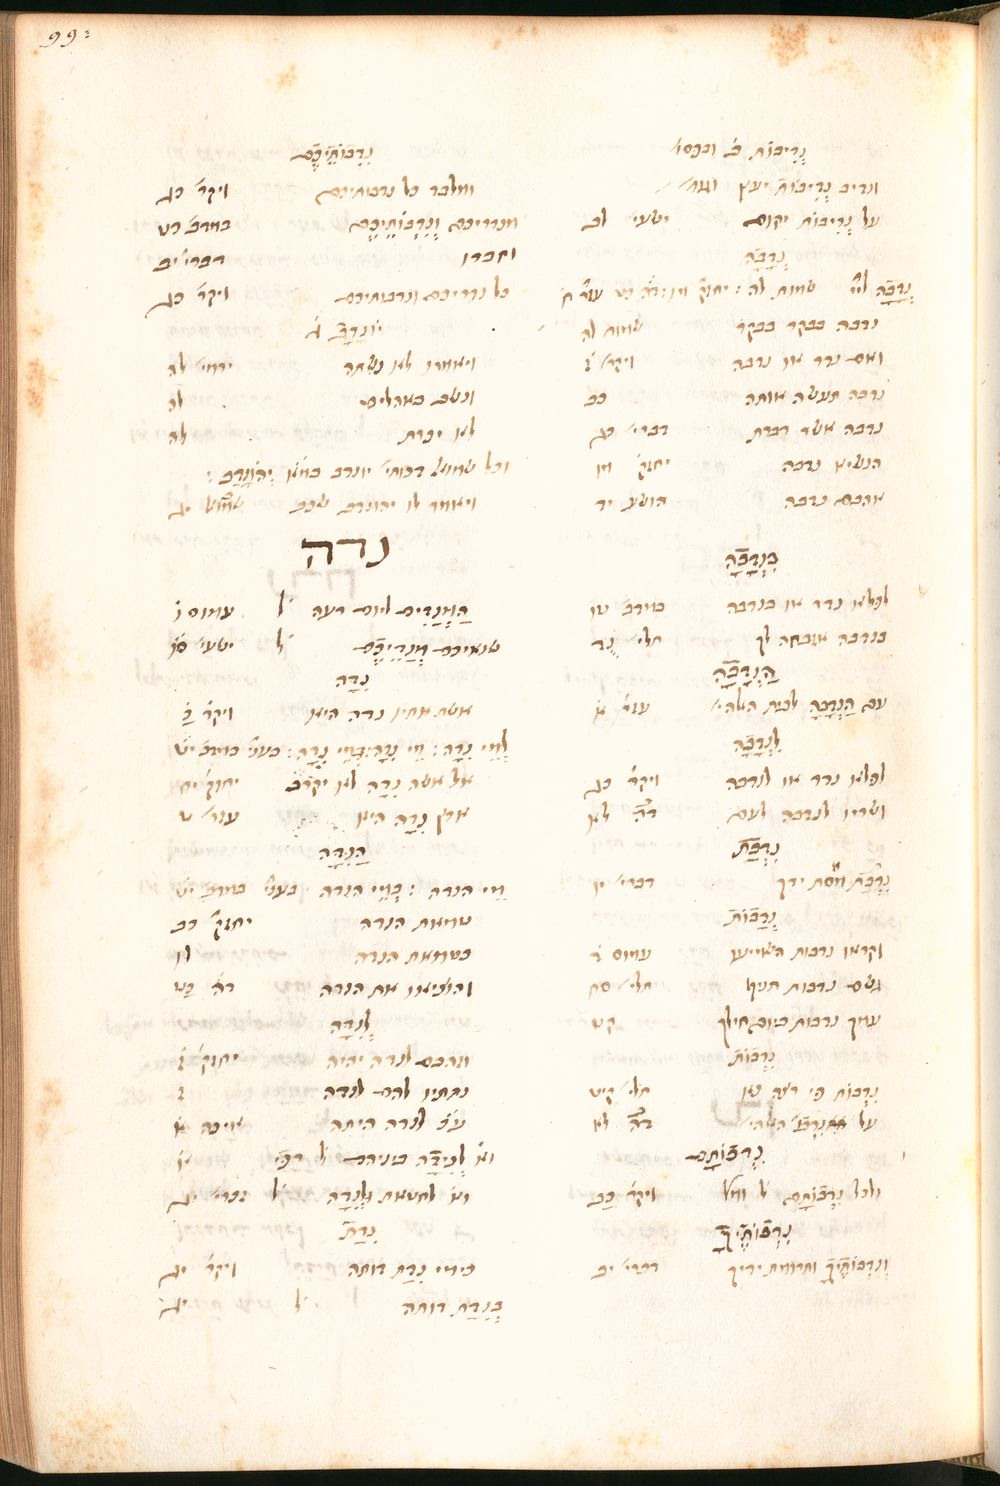 99:
נְדִיבוֹת ב׳ ובפסו׳
ונדיב נְדִיבוֹת יעץ
על נְדִיבוֹת יקום ישעי׳ לב
נְדָבָה
נְדָבָה לײ׳ שמות לה:
נדבה בבקר בבקר שמות לה
ואם נדר או נדבה ויקר׳ ז
נדבה תעשה אותה כב
נדבה אשר דברת דברי׳ כג
הנשיא נדבה יחזק׳ מו
אהבם נדבה הושע יד
בִּנְדָבָה
לפלא נדר או בנדבה במדב׳ טו
בנדבה אזבחה לך תלי׳ נד
הַנְּדָבָה
עם הַנְּדָבָה לבית האלהי׳ עזר׳ א
לִנְדָבָה
לפלא נדר או לנדבה ויקר׳ כב
ושריו לנדבה לעם
נִדְבַת
נִדְבַת מסת ידך דברי׳ יו
נְדָבוֹת
וקראו נדבות השמיעו עמוס ד
גשם נדבות תניף תלי׳ סח
עמך נדבות ביום חילך קי
נִדְבוֹת
נִדְבוֹת פי רצה נא תלי׳ קיט
על נִדְבוֹת האלהי׳ לא
נִדְבוֹתָם
ולכל נִדְבוֹתָם ויקר׳ כב
נִדְבוֹתֶיךָ
וְנִדְבוֹתֶיךָ ותרומת ידיך דברי׳ יב
נִדְבוֹתֵיכֶם
ומלבד כל נדבותיכם ויקר׳ כג
מנדריכם וְנִדְבוֹתֵיכֶם במדב׳ כט
וחברו דברי׳ יב
כל נדריכם ונדבותיכם ויקר׳ כג
יוֹנָדָב ג׳
ויאמרו לא נשתה ירמי׳ לה
ונשב באהלים לה
לא יכרת לה
וכל שמואל דכותי׳ יונדב במ׳א׳ יְהוֹנָדָב:
ויאמר לו יהונדב שכב יג
נדה
הַמְנַדִּים ליום רעה ל׳ עמוס ו
שנאיכם מְנַדֵּיכֶם ל׳ ישעי׳ סו
נִדָּה
אשת אחיו נדה היא ויקר׳ כ
לְמֵי נִדָּה: מֵי נִדָּה: בְּמֵי נִדָּה: בענ׳ במדב׳ יט
אל אשה נִדָּה לא יקרב יחזק׳ יח
ארץ נִדָּה היא עזר׳ ט
הַנִּדָּה
מֵי הנדה: בְּמֵי הנדה בענ׳ במדב׳ יט
טמאת הנדה יחזק׳ כב
כטמאת הנדה לו
והוציאו את הנדה כט
לְנִדָּה
וזהבם לנדה יהיה יחזק׳ ז
נתתיו להם לנדה ז
ע״כ לנדה היתה איכה א
לְנִדָּה ביניהם א
לחטאת וּלְנִדָּה ל׳ זכרי׳ יג
נִדַּת
כימי נִדַּת דותה ויקר׳ יב
בְּנִדַּת דותה ל׳